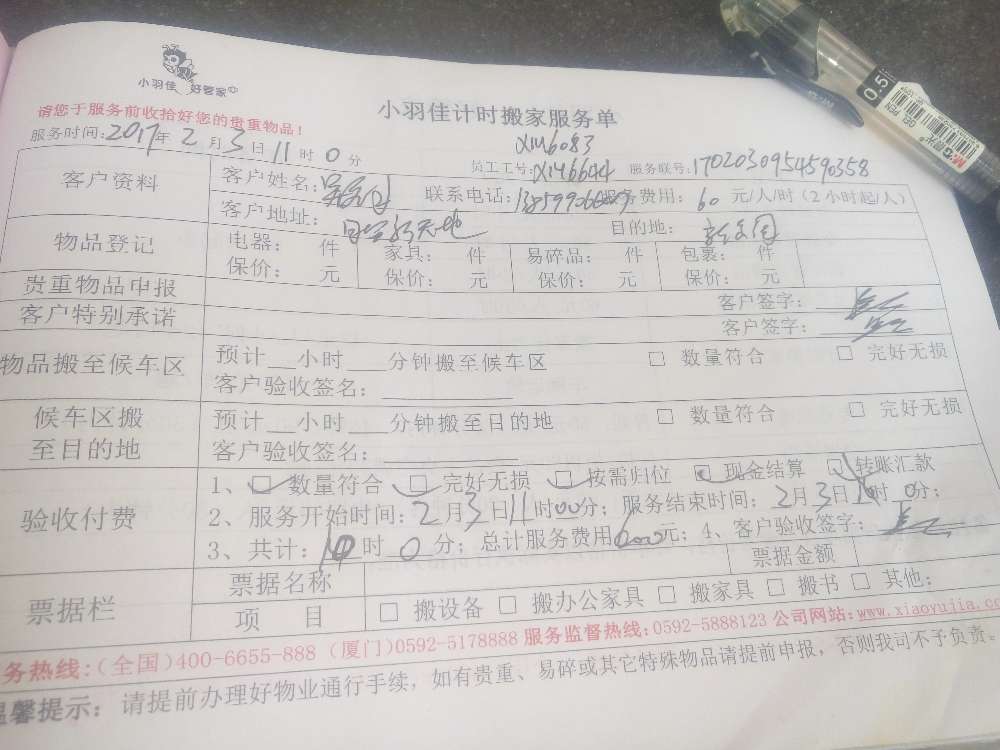 小羽佳 好管家
小羽佳计时搬家服务单
请您于服务前收拾好您的贵重物品！
XM6083
服务时间：2017年 2 月 3 日 11 时 0 分 员工工号：XM6644 服务联号：17020309514590358
客户资料 客户姓名： 联系电话： 服务费用：60 元/人/时（2小时起/人）
客户地址： 目的地：
物品登记 电器： 件 家具： 件 易碎品： 件 包裹： 件
保价： 元 保价： 元 保价： 元 保价： 元
贵重物品申报 客户签字：
客户特别承诺 客户签字：
物品搬至候车区 预计__小时___分钟搬至候车区 □ 数量符合 □ 完好无损
客户验收签名：
候车区搬至目的地 预计__小时___分钟搬至目的地 □ 数量符合 □ 完好无损
客户验收签名：
验收付费 1、☑ 数量符合 ☑ 完好无损 ☑ 按需归位 ☑ 现金结算 ☑ 转账汇款
2、服务开始时间：2月3日11时00分；服务结束时间：2月3日 时 0分；
3、共计： 时 0 分；总计服务费用 元；4、客户验收签字：
票据栏 票据名称 票据金额
项 目 □ 搬设备 □ 搬办公家具 □ 搬家具 □ 搬书 □ 其他：
务热线：(全国)400-6655-888 (厦门)0592-5178888 服务监督热线：0592-5888123 公司网站：www.xiaoyujia.co
温馨提示：请提前办理好物业通行手续，如有贵重、易碎或其它特殊物品请提前申报，否则我司不予负责。
0.5
GEL PEN
M&G